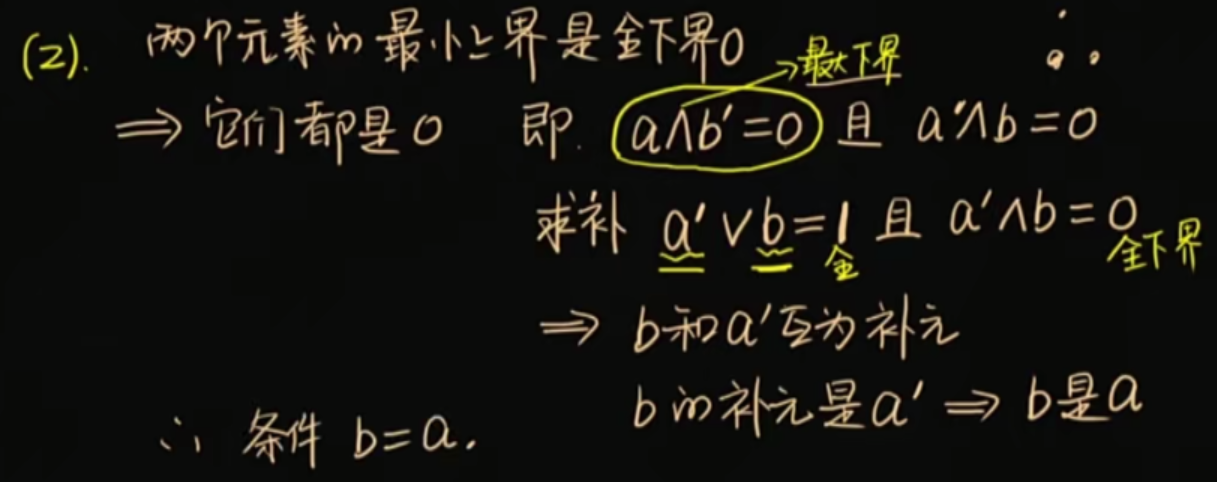 (2). 两个元素的最小上界是全下界0
→最大下界
⇒ 它们都是0 即. a∧b′=0 且 a′∧b=0
求补 a′∨b=1 且 a′∧b=0
全 全下界
⇒ b和a′互为补元
b的补元是a′ ⇒ b是a
∴ 条件 b=a.